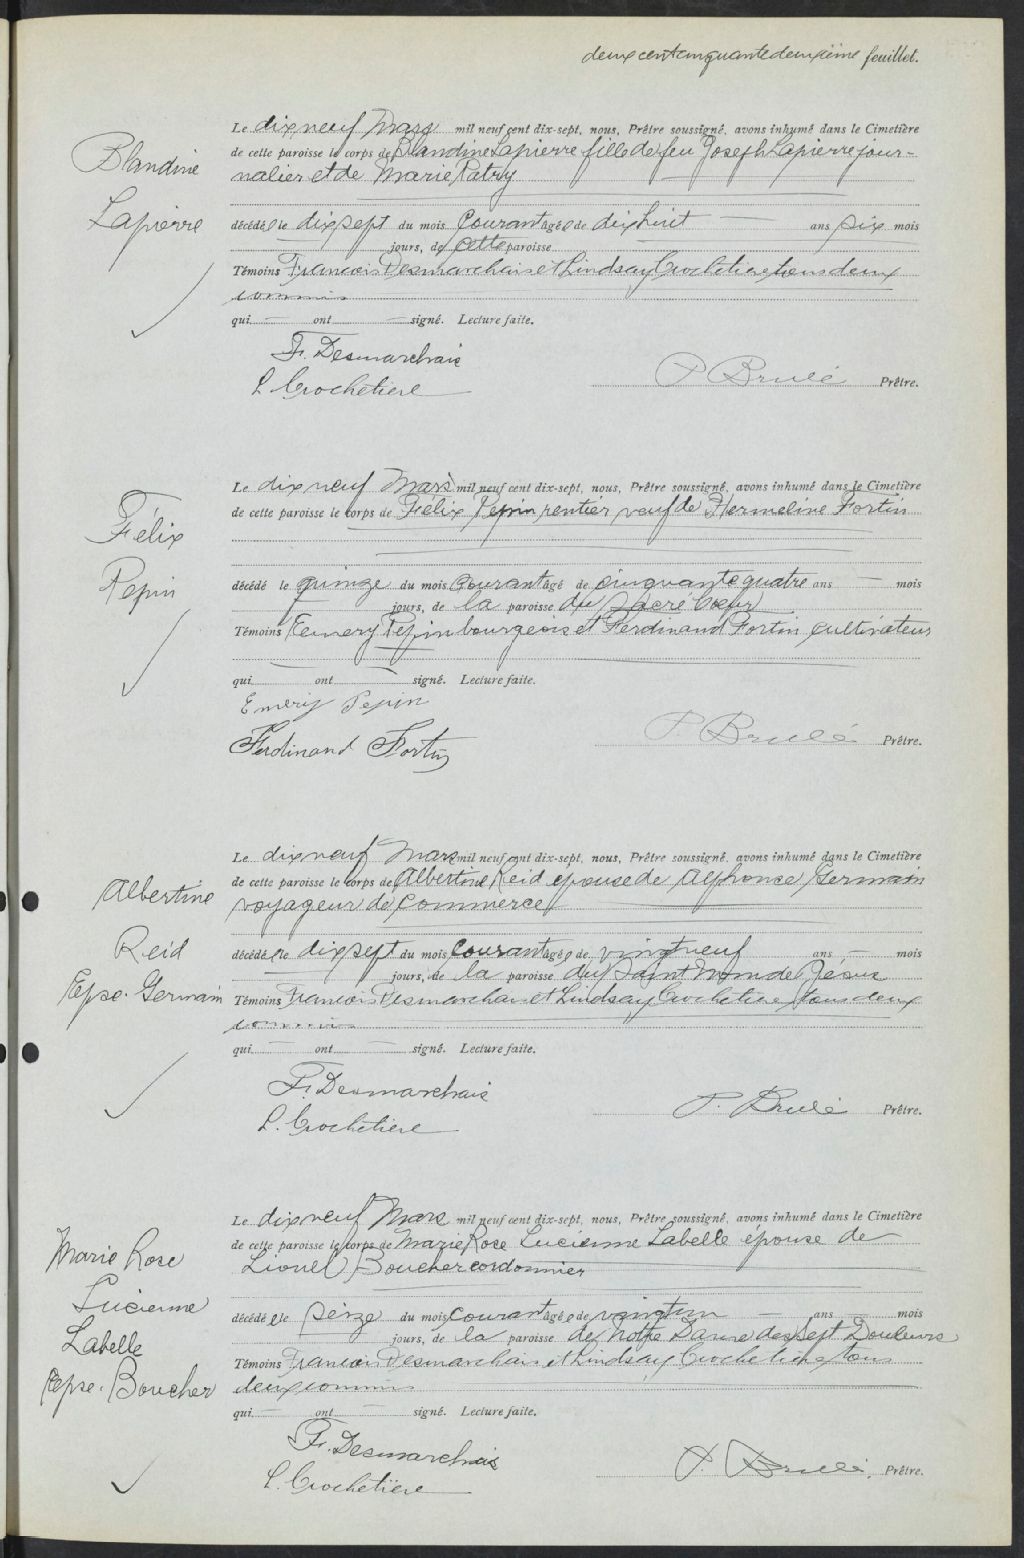 deux cent cinquante deuxième feuillet.
Blandine
Lapierre
Le dix neuf Mars mil neuf cent dix-sept, nous, Prêtre soussigné, avons inhumé dans le Cimetière
de cette paroisse le corps de Blandine Lapierre fille de feu Joseph Lapierre jour-
nalier et de Marie Patry
décédée le dix sept du mois Courant âgée de dix huit ans six mois
jours, de cette paroisse
Témoins Francois Desmarchais et Lindsay Crochetiere tous deux
commis
qui ont signé. Lecture faite.
Fr. Desmarchais
L. Crochetiere
P. Brulé Prêtre.
Félix
Pepin
Le dix neuf Mars mil neuf cent dix-sept, nous, Prêtre soussigné, avons inhumé dans le Cimetière
de cette paroisse le corps de Félix Pepin rentier veuf de Hermeline Fortin
décédé le quinze du mois Courant âgé de cinquante quatre ans mois
jours, de la paroisse du Sacré Coeur
Témoins Emery Pepin bourgeois et Ferdinand Fortin cultivateur
qui ont signé. Lecture faite.
Emery Pepin
Ferdinand Fortin
P. Brulé Prêtre.
Albertine
Reid
Epse. Germain
Le dix neuf Mars mil neuf cent dix-sept, nous, Prêtre soussigné, avons inhumé dans le Cimetière
de cette paroisse le corps de Albertine Reid épouse de Alphonse Germain
voyageur de Commerce
décédée le dix sept du mois Courant âgée de vingt neuf ans mois
jours, de la paroisse du Saint Nom de Jésus
Témoins Francois Desmarchais et Lindsay Crochetiere tous deux
commis
qui ont signé. Lecture faite.
Fr. Desmarchais
L. Crochetiere
P. Brulé Prêtre.
Marie Rose
Lucienne
Labelle
Epse. Boucher
Le dix neuf Mars mil neuf cent dix-sept, nous, Prêtre soussigné, avons inhumé dans le Cimetière
de cette paroisse le corps de Marie Rose Lucienne Labelle épouse de
Lionel Boucher cordonnier
décédée le seize du mois courant âgée de vingt un ans mois
jours, de la paroisse de Notre Dame des Sept Douleurs
Témoins Francois Desmarchais et Lindsay Crochetiere tous
deux commis
qui ont signé. Lecture faite.
Fr. Desmarchais
L. Crochetière
P. Brulé, Prêtre.